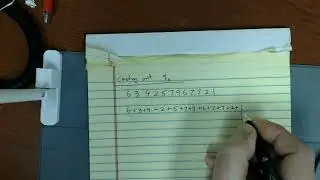 Casting out 9s
634257967721
6+3+4+2+5+7+9+6+7+7+2+